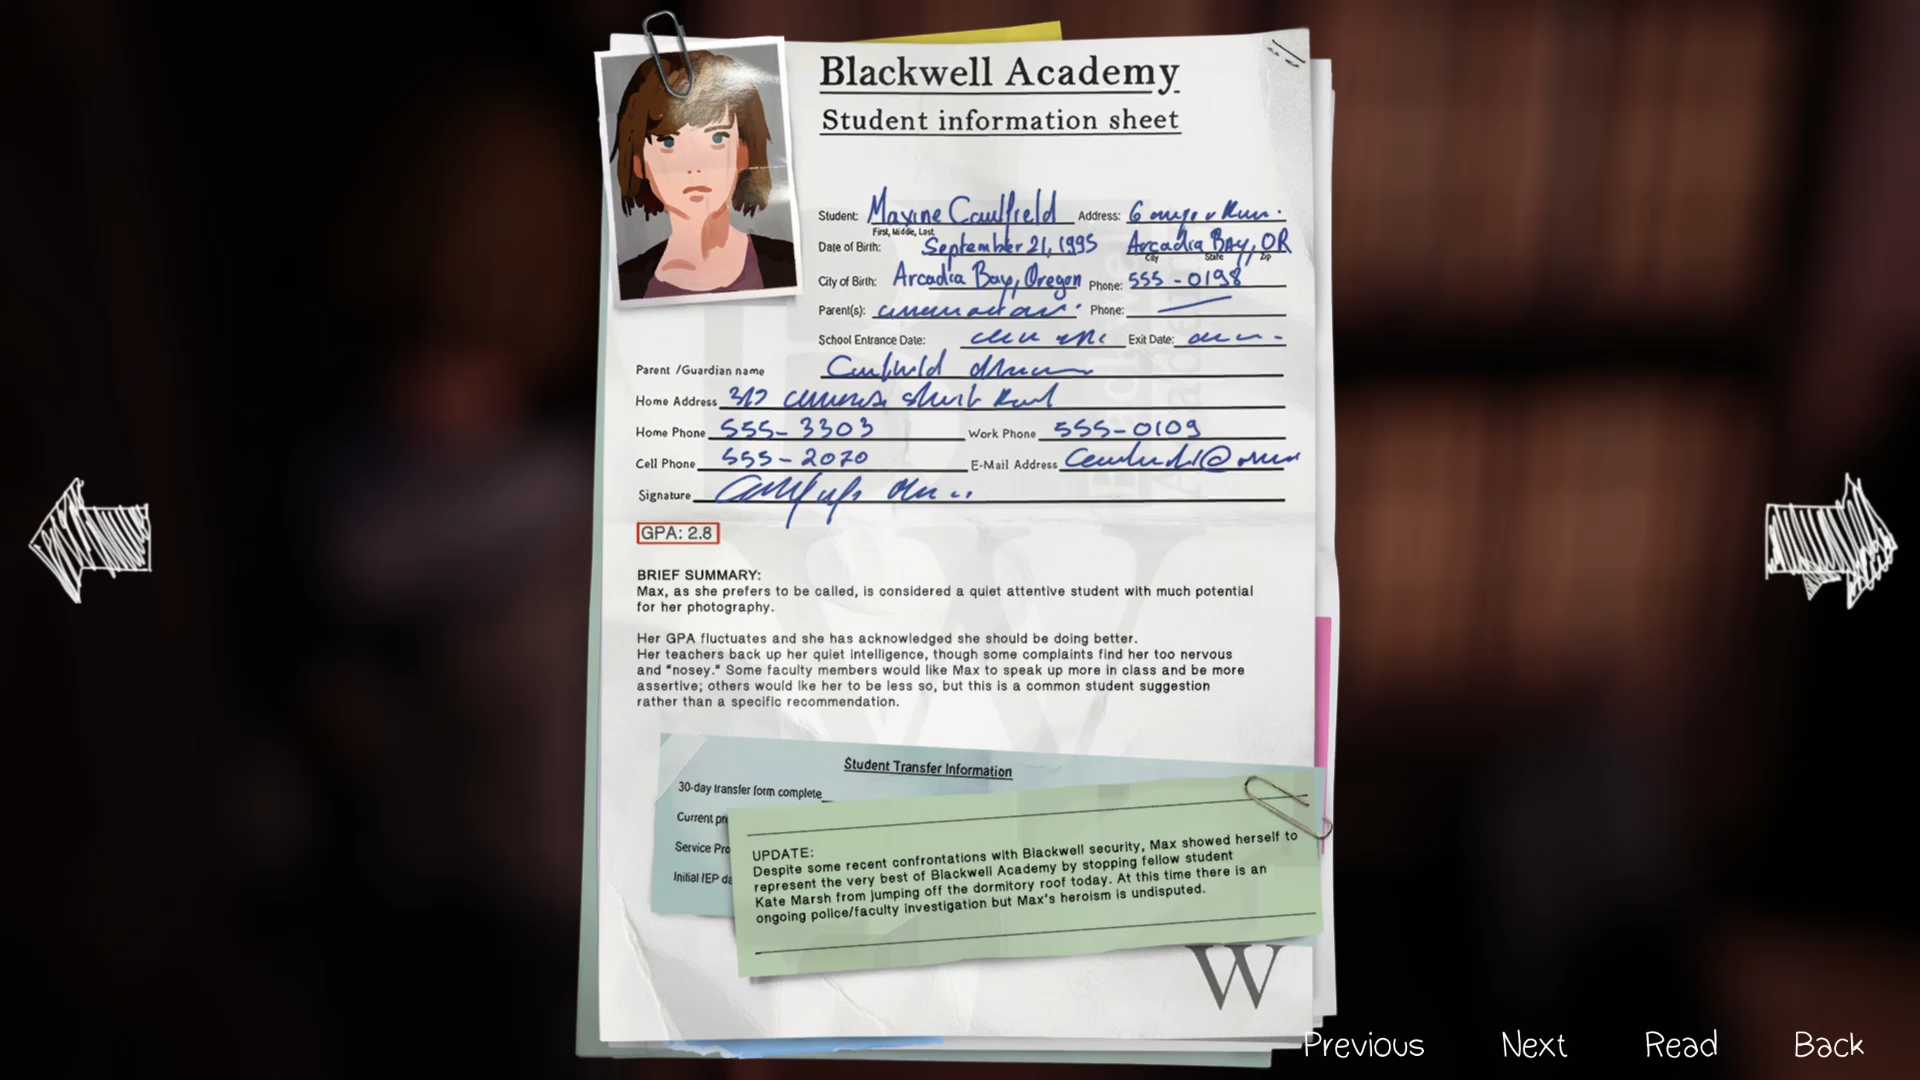 Blackwell Academy
Student information sheet
Student: Maxine Caulfield Address:
First, Middle, Last
Date of Birth: September 21, 1995 Arcadia Bay, OR
City State Zip
City of Birth: Arcadia Bay, Oregon Phone: 555-0198
Parent(s): Phone:
School Entrance Date: Exit Date:
Parent /Guardian name
Home Address
Home Phone 555-3303 Work Phone 555-0109
Cell Phone 555-2070 E-Mail Address
Signature
GPA: 2.8
BRIEF SUMMARY:
Max, as she prefers to be called, is considered a quiet attentive student with much potential
for her photography.
Her GPA fluctuates and she has acknowledged she should be doing better.
Her teachers back up her quiet intelligence, though some complaints find her too nervous
and "nosey." Some faculty members would like Max to speak up more in class and be more
assertive; others would ike her to be less so, but this is a common student suggestion
rather than a specific recommendation.
Student Transfer Information
30-day transfer form complete
Current pr
Service Pro
Initial IEP da
UPDATE:
Despite some recent confrontations with Blackwell security, Max showed herself to
represent the very best of Blackwell Academy by stopping fellow student
Kate Marsh from jumping off the dormitory roof today. At this time there is an
ongoing police/faculty investigation but Max's heroism is undisputed.
W
Previous Next Read Back